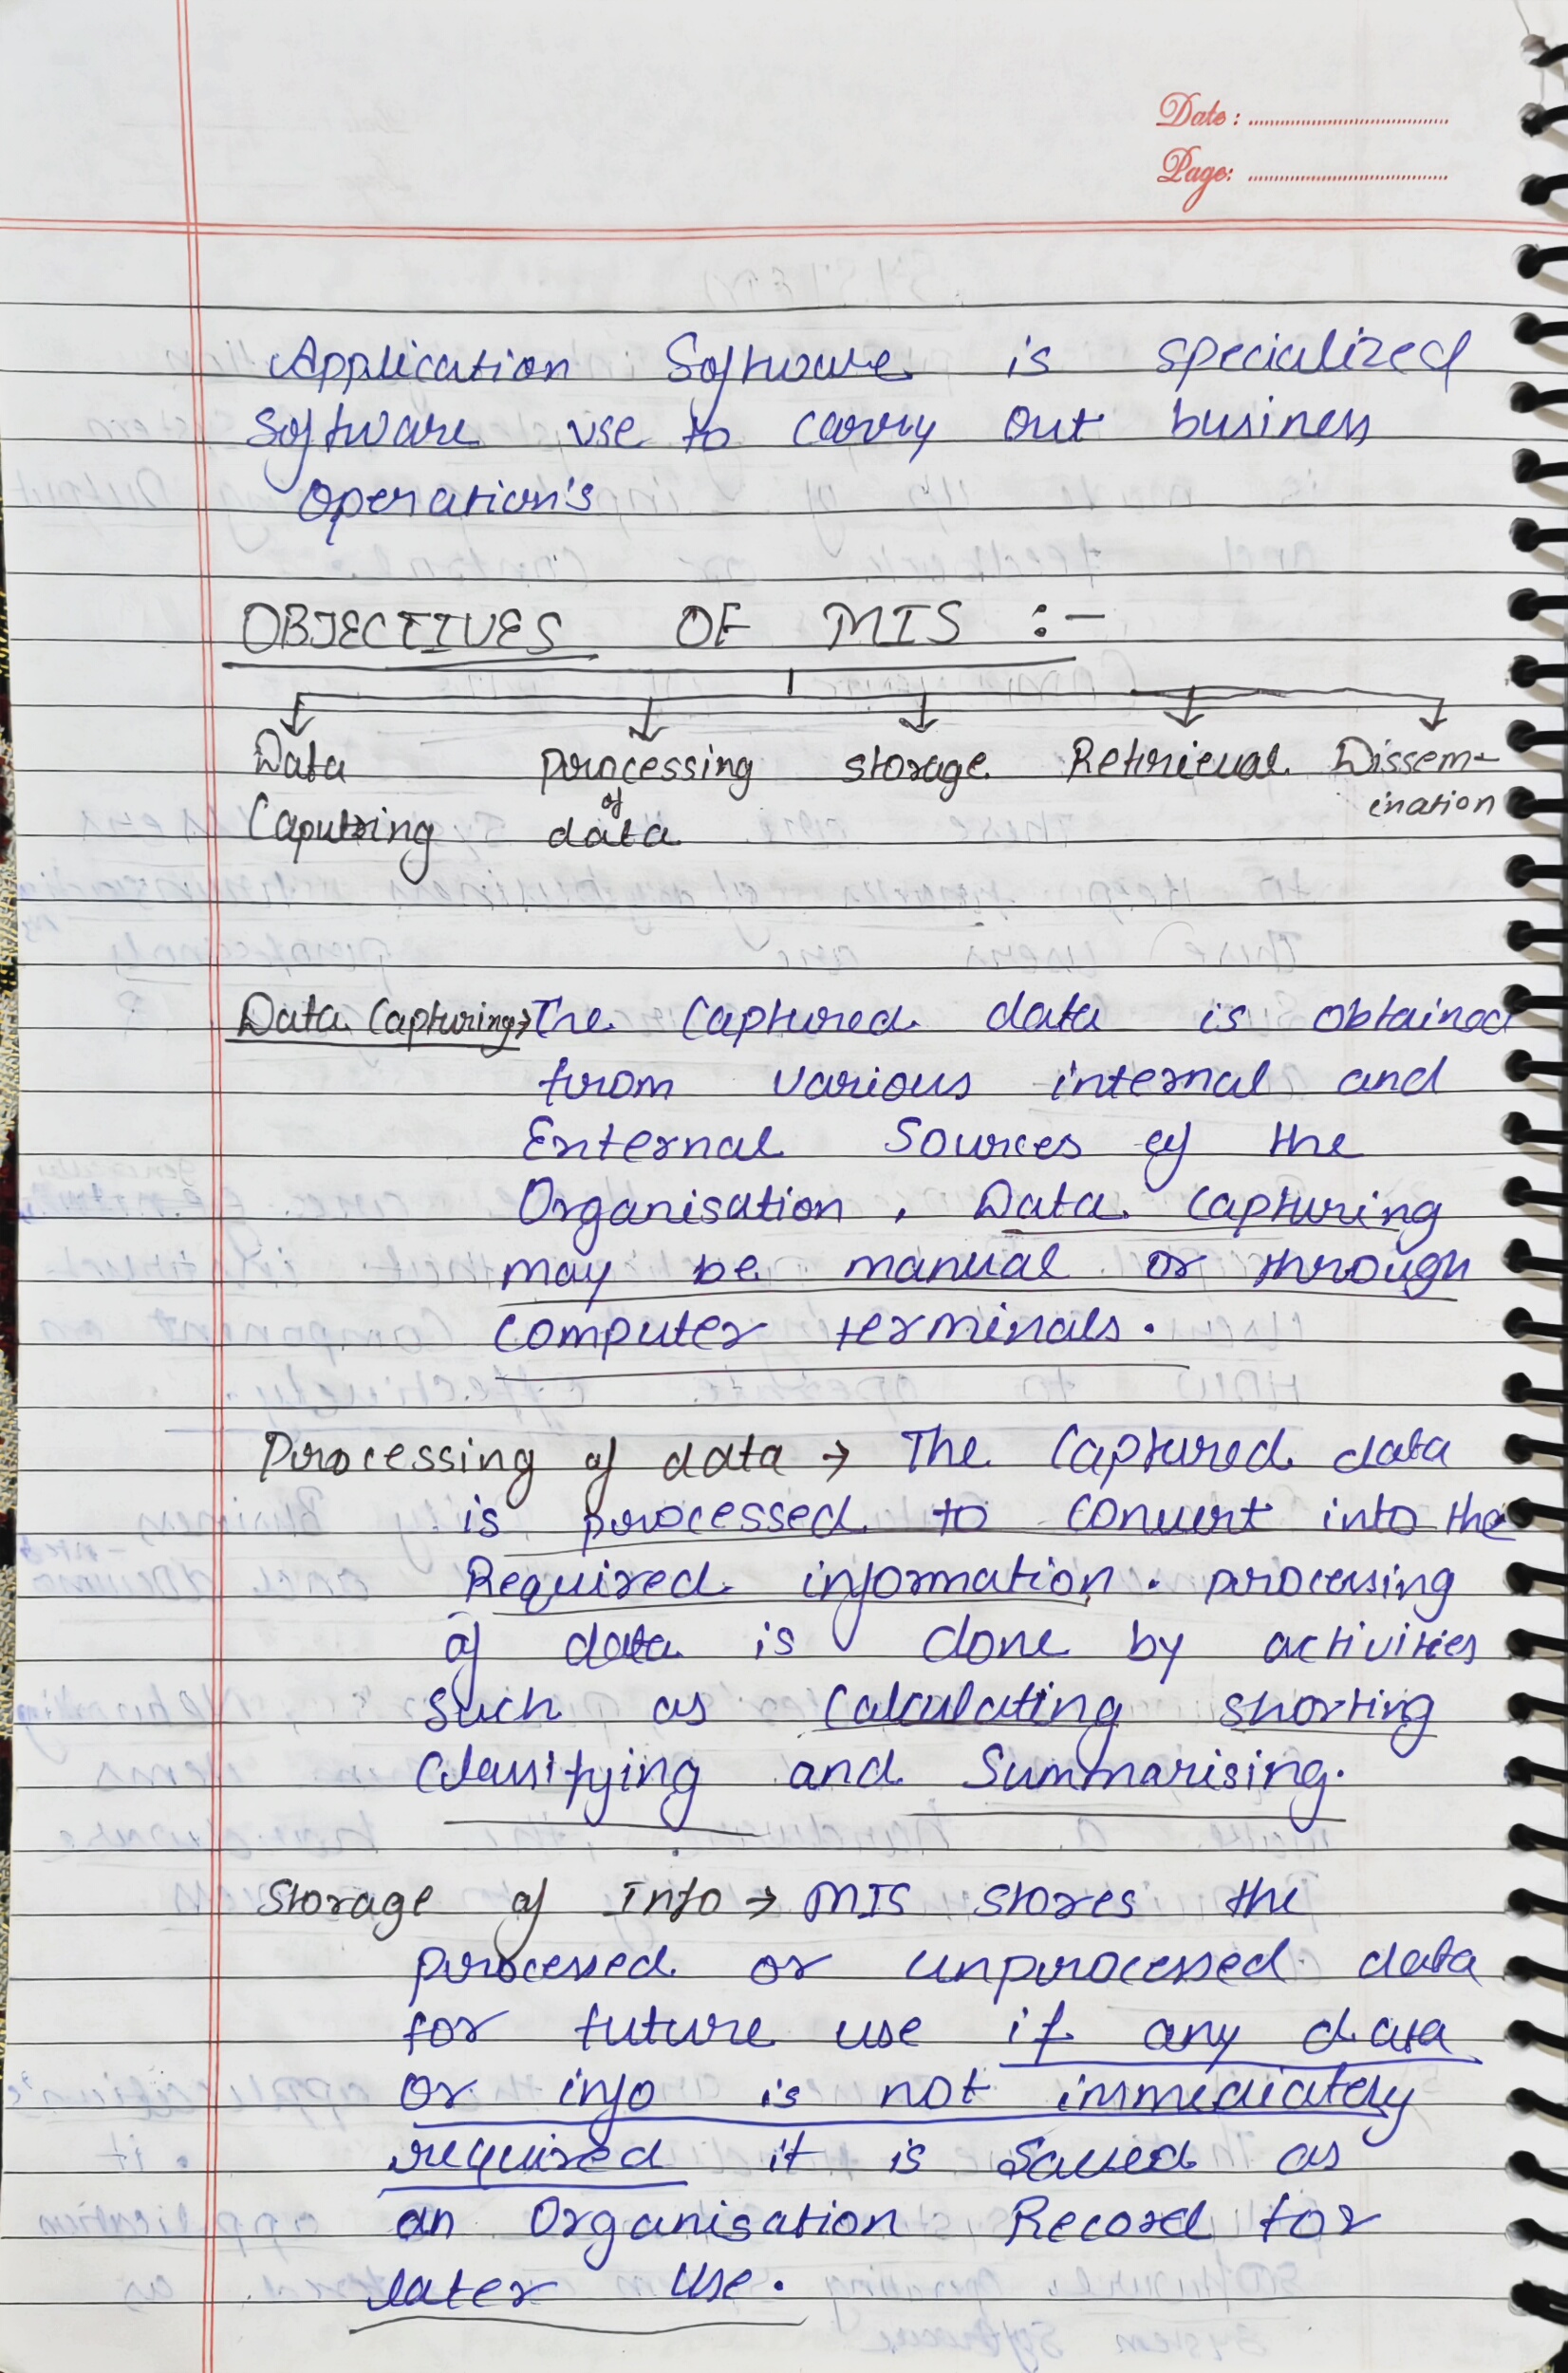 Date :
Page:
Application Software is specialized
Software use to carry out business
operation's
OBJECTIVES OF MIS :-
Data processing storage Retrieval Dissem-
Caputring of data ination
Data Capturing→The Captured data is obtained
from various internal and
External Sources of the
Organisation , Data Capturing
may be manual or through
computer terminals.
Processing of data → The Captured data
is processed to convert into the
Required information. processing
of data is done by activities
such as Calculating shorting
Classifying and Summarising.
Storage of Info → MIS stores the
processed or unprocessed data
for future use if any data
or info is not immediately
required it is Saved as
an Organisation Record for
later use.